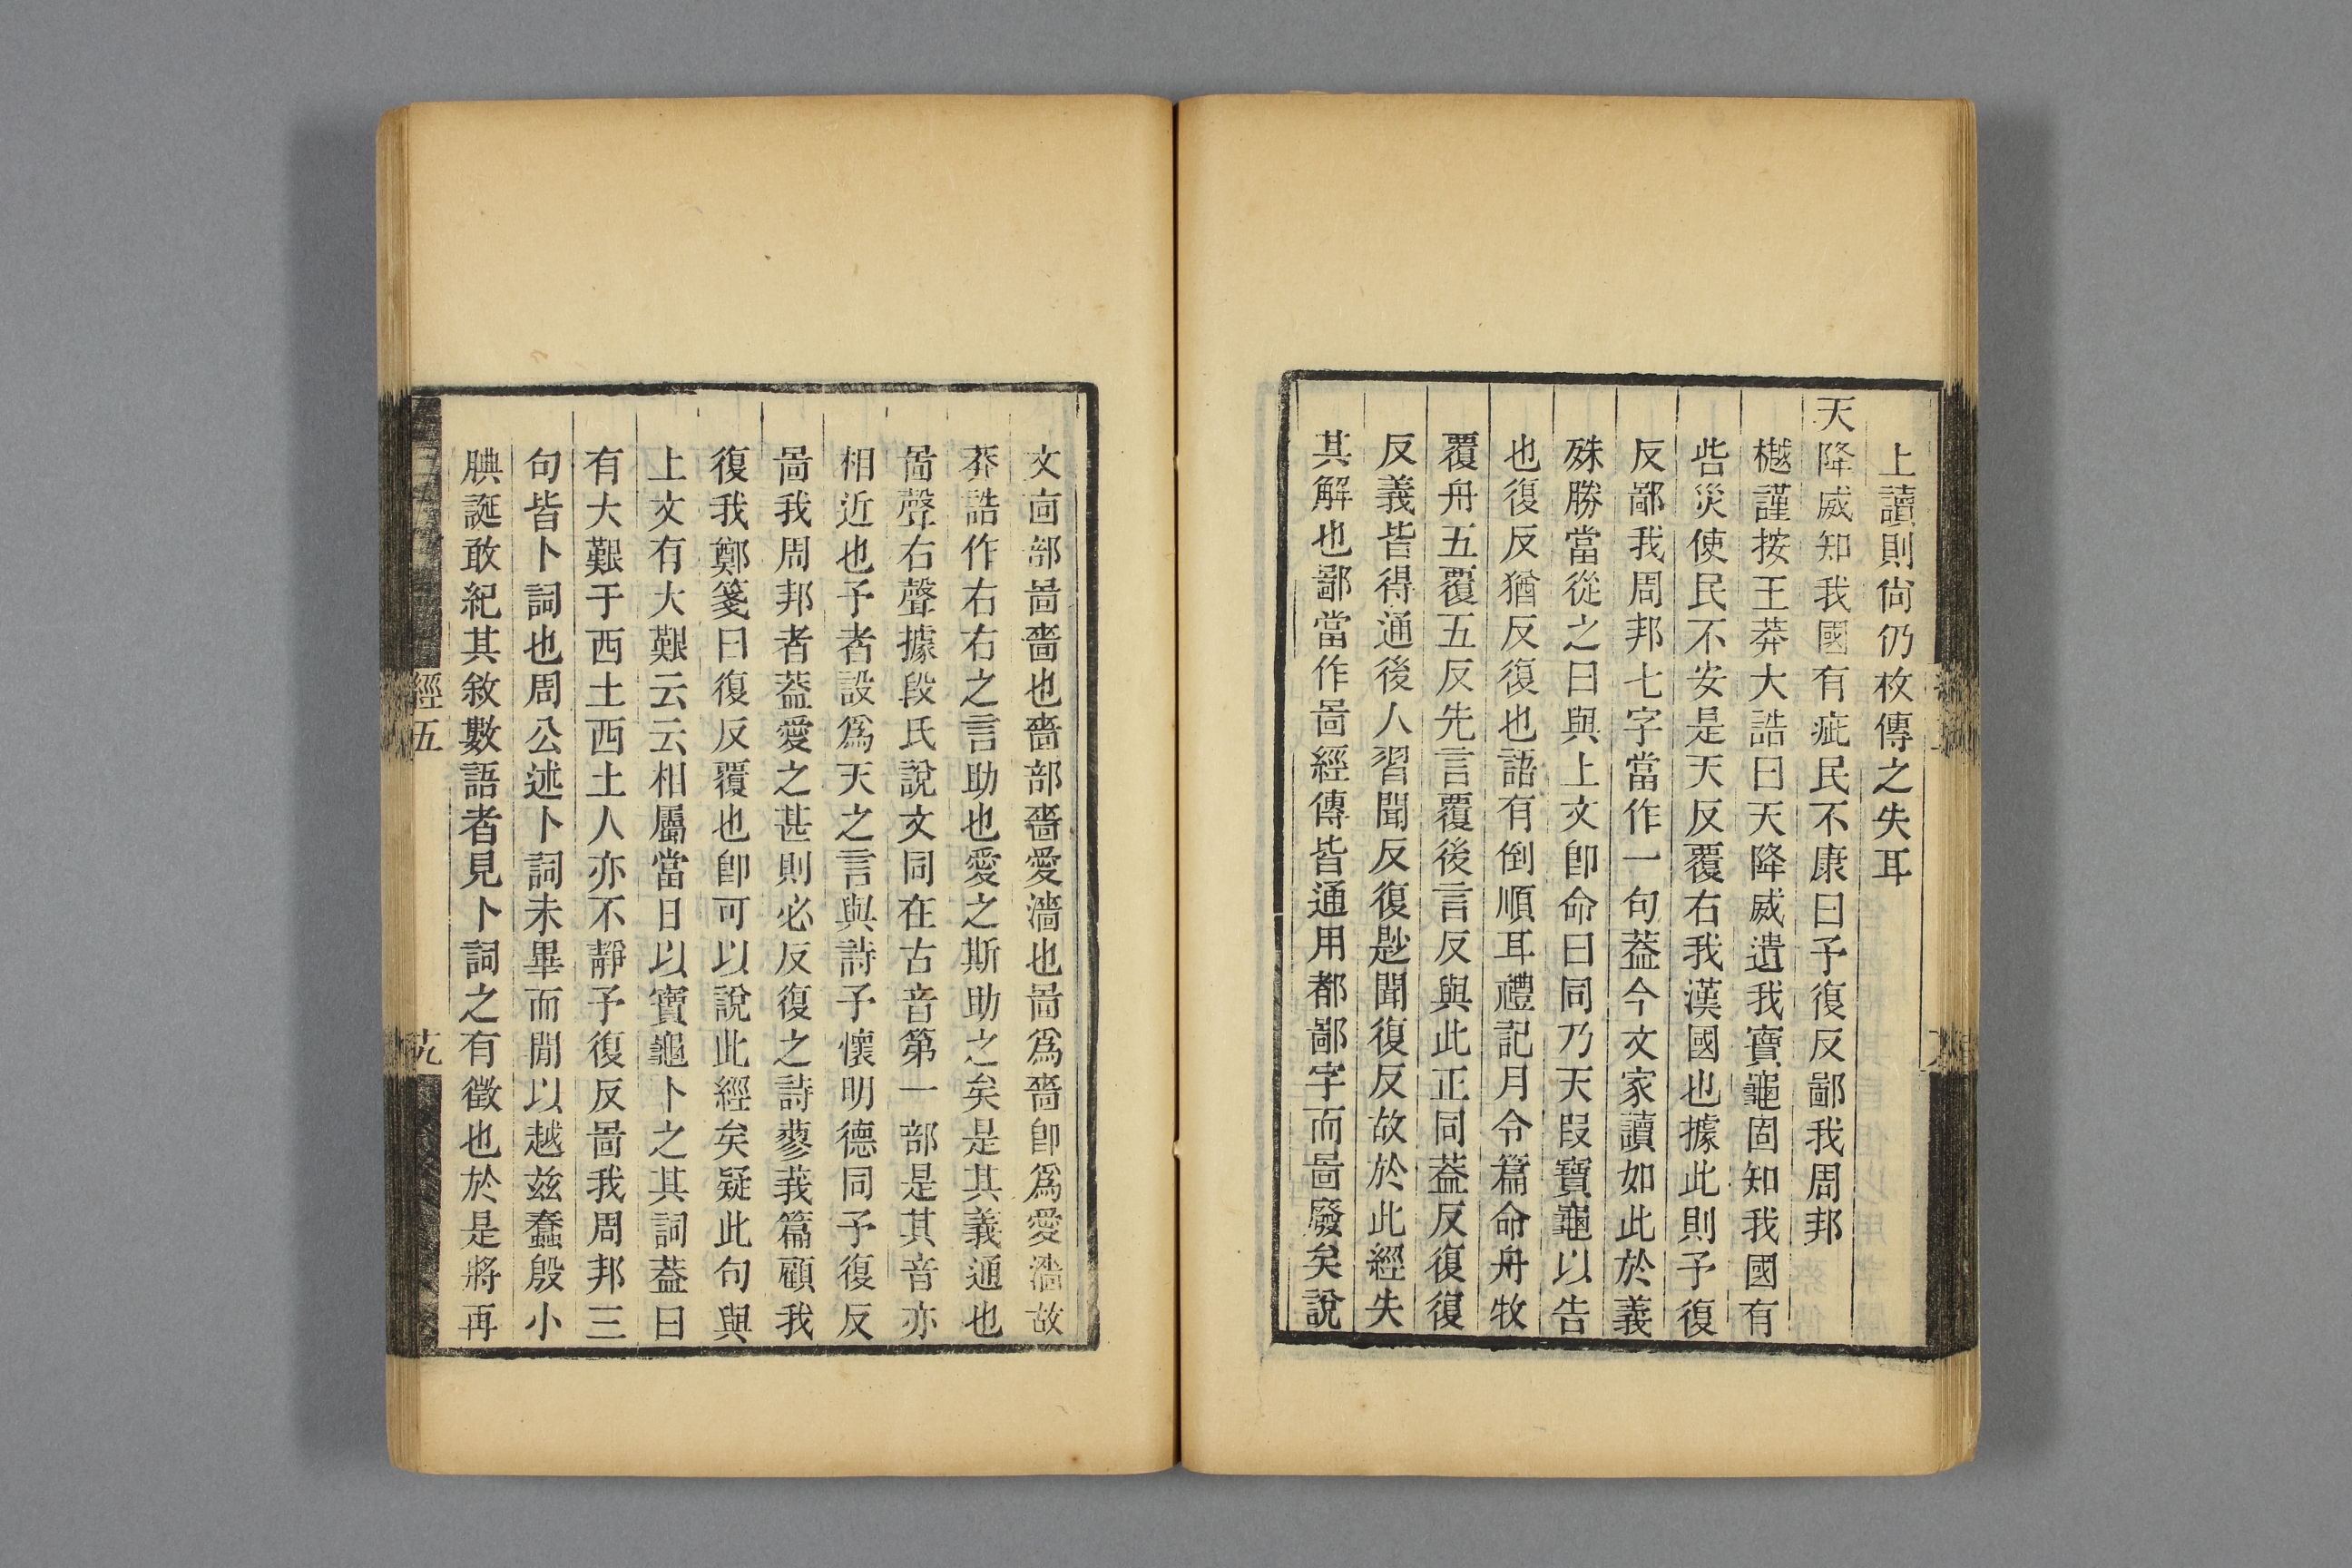 上讀則尙仍枚傳之失耳
天降威知我國有疵民不康曰予復反鄙我周邦
樾謹按王莽大誥曰天降威遺我寶龜固知我國有
呰災使民不安是天反覆右我漢國也據此則予復
反鄙我周邦七字當作一句葢今文家讀如此於義
殊勝當從之曰與上文卽命曰同乃天叚寶龜以告
也復反猶反復也語有倒順耳禮記月令篇命舟牧
覆舟五覆五反先言覆後言反與此正同葢反復復
反義皆得通後人習聞反復尟聞復反故於此經失
其解也鄙當作啚經傳皆通用都鄙字而啚廢矣說
文㐭部啚嗇也嗇部嗇愛濇也啚爲嗇卽爲愛濇故
莽誥作右右之言助也愛之斯助之矣是其義通也
啚聲右聲據段氏說文同在古音第一部是其音亦
相近也予者設爲天之言與詩予懷明德同予復反
啚我周邦者葢愛之甚則必反復之詩蓼莪篇顧我
復我鄭箋曰復反覆也卽可以說此經矣疑此句與
上文有大艱云云相屬當日以寶龜卜之其詞葢曰
有大艱于西土西土人亦不靜予復反啚我周邦三
句皆卜詞也周公述卜詞未畢而閒以越茲蠢殷小
腆誕敢紀其敘數語者見卜詞之有徵也於是將再
經五